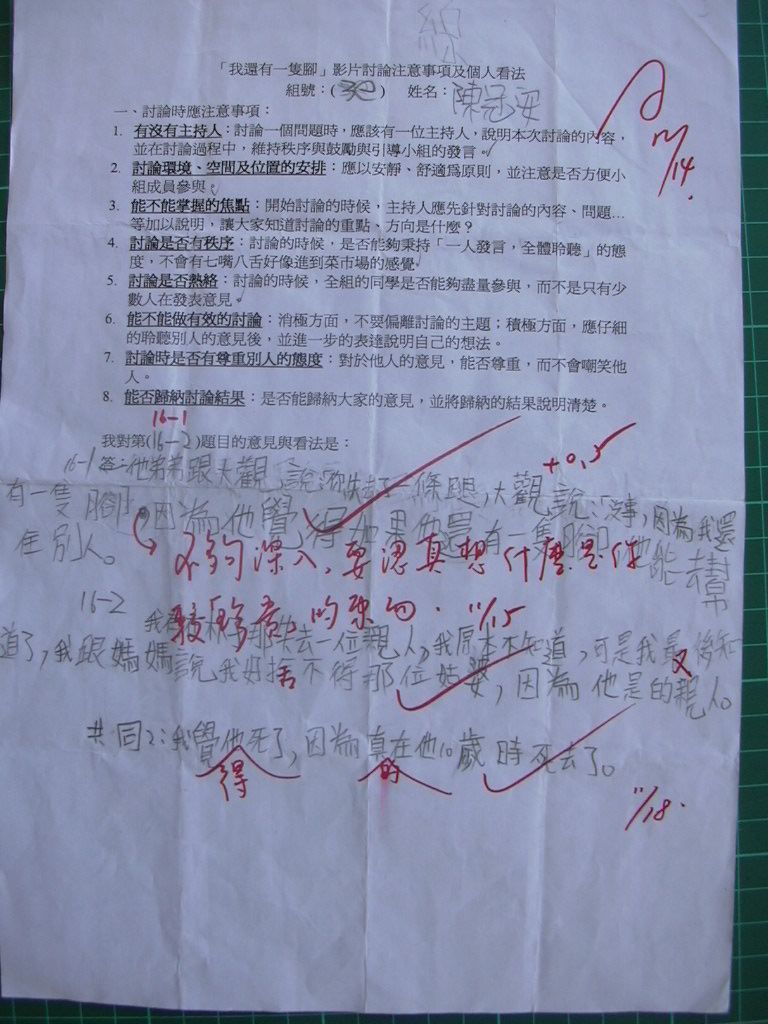 「我還有一隻腳」影片討論注意事項及個人看法
組號：( ) 姓名：陳冠安
一、討論時應注意事項：
1. 有沒有主持人：討論一個問題時，應該有一位主持人，說明本次討論的內容，
並在討論過程中，維持秩序與鼓勵與引導小組的發言。
2. 討論環境、空間及位置的安排：應以安靜、舒適為原則，並注意是否方便小
組成員參與。
3. 能不能掌握的焦點：開始討論的時候，主持人應先針對討論的內容、問題…
等加以說明，讓大家知道討論的重點、方向是什麼？
4. 討論是否有秩序：討論的時候，是否能夠秉持「一人發言，全體聆聽」的態
度，不會有七嘴八舌好像進到菜市場的感覺。
5. 討論是否熱絡：討論的時候，全組的同學是否能夠盡量參與，而不是只有少
數人在發表意見。
6. 能不能做有效的討論：消極方面，不要偏離討論的主題；積極方面，應仔細
的聆聽別人的意見後，並進一步的表達說明自己的想法。
7. 討論時是否有尊重別人的態度：對於他人的意見，能否尊重，而不會嘲笑他
人。
8. 能否歸納討論結果：是否能歸納大家的意見，並將歸納的結果說明清楚。
16-1
我對第(16-2)題目的意見與看法是：
+0.5
16-1 答：他弟弟跟大觀說：你失去了一條腿，大觀說：「沒事，因為我還
有一隻腳」因為他覺得如果他還有一隻腳他能去幫
佳別人。
不夠深入，要認真想什麼是
的 11/15
16-2 失去一位親人，我原本不知道，可是我最後知
道了，我跟媽媽說我好捨不得那位姑婆，因為他是的親人。
共同2：我覺他死了，因為真在他10歲時死去了。
得 的
11/18.
12/14.